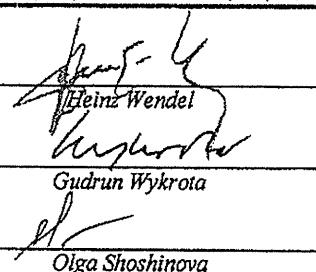 Heinz Wendel
Wykrota
Gudrun Wykrota
Olga Shoshinova